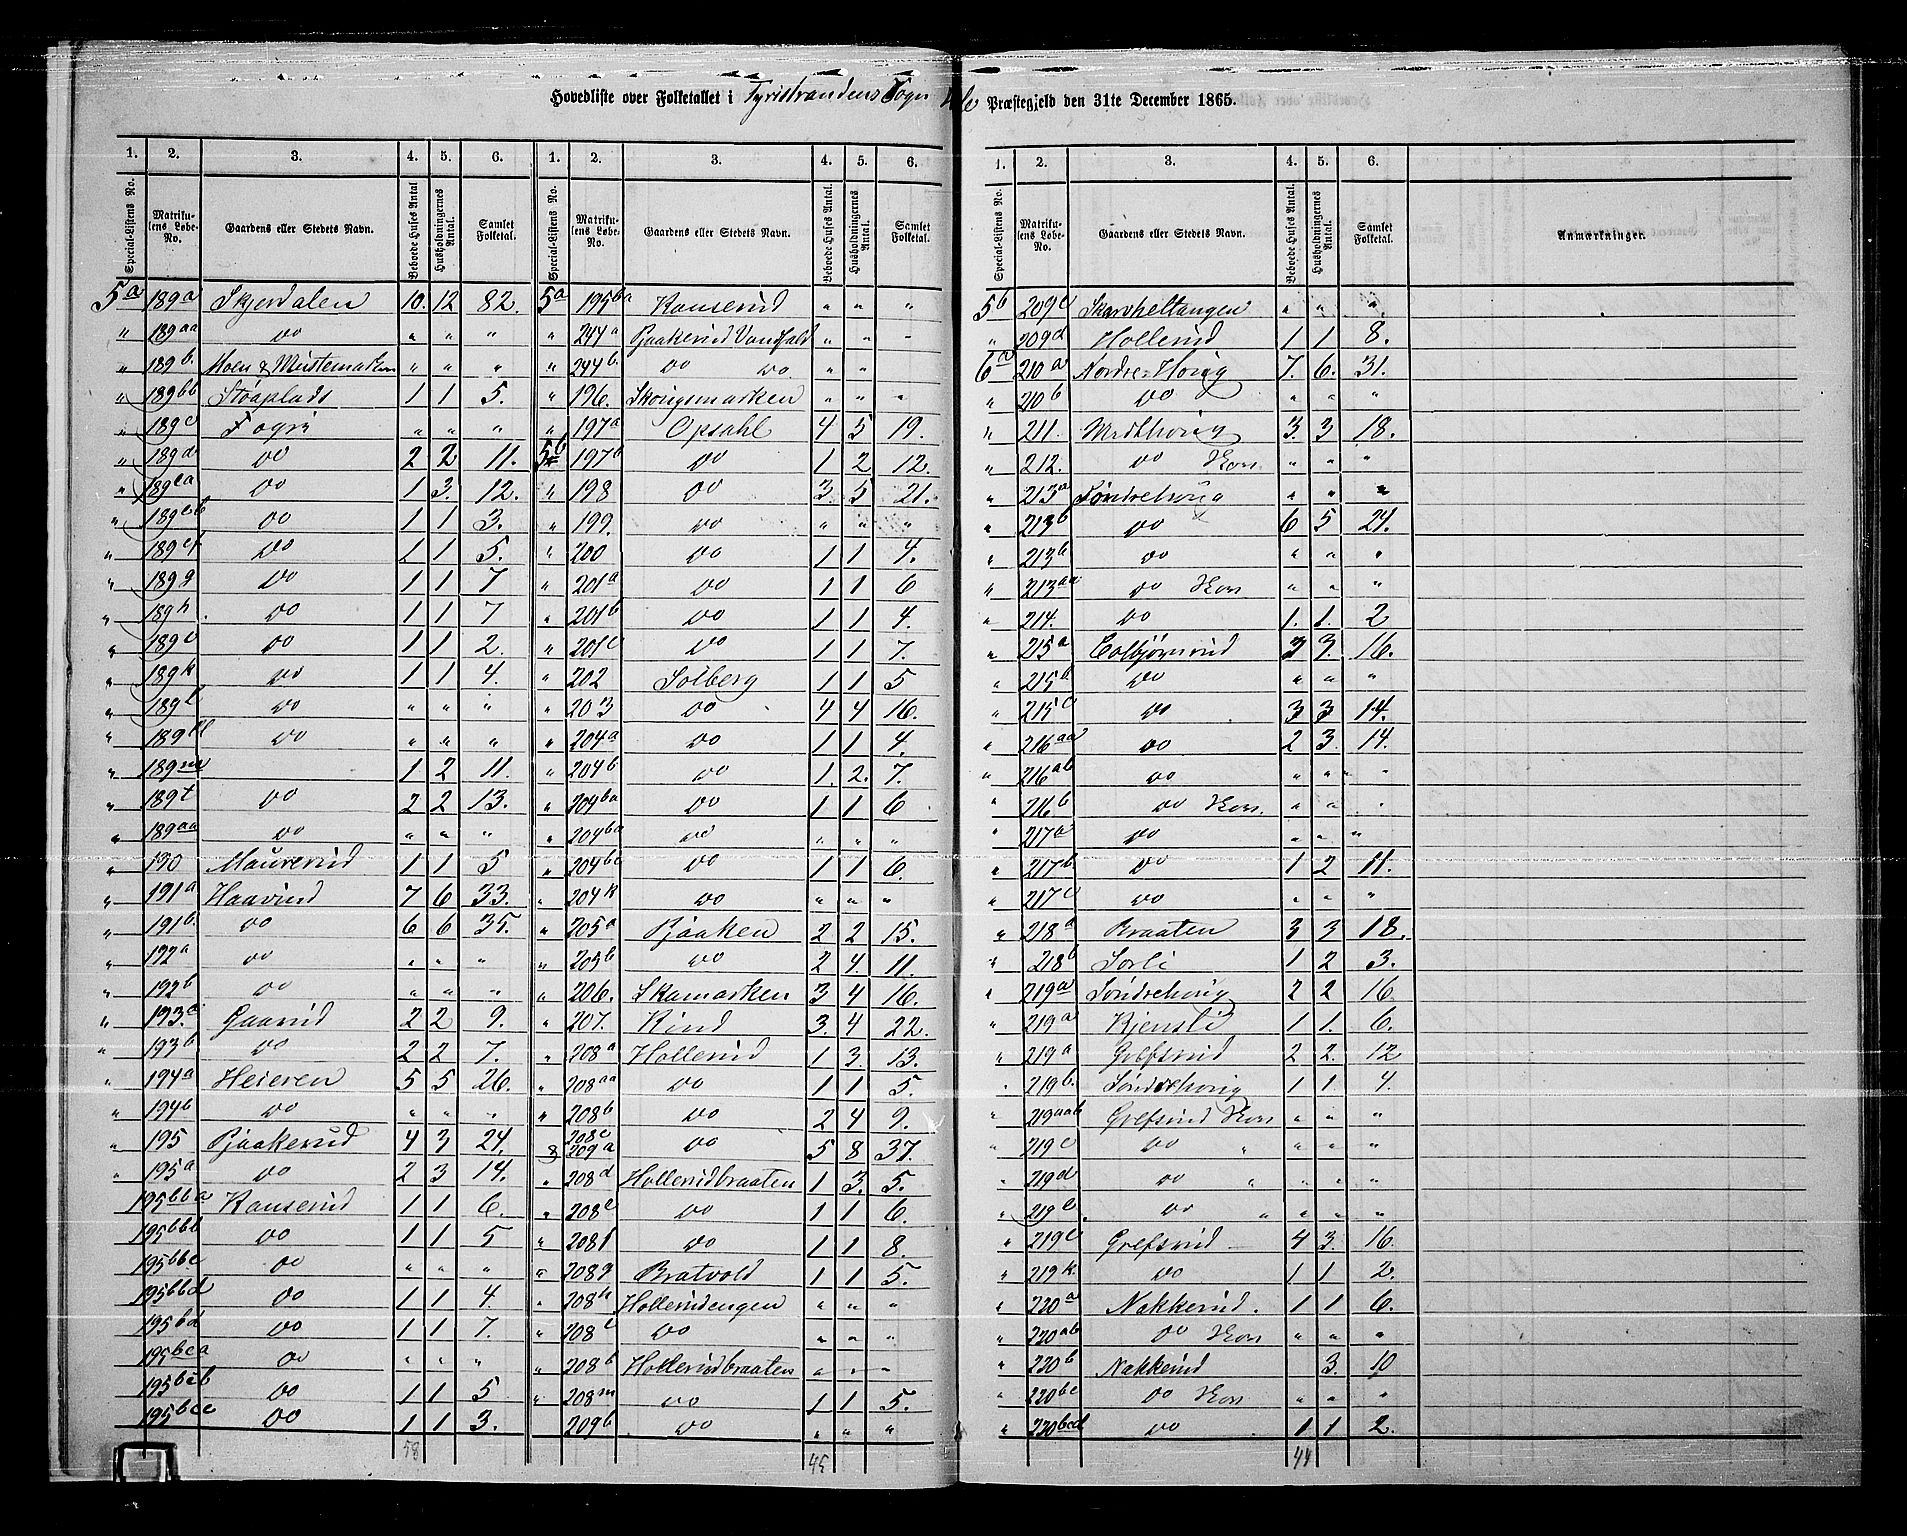 Hovedliste over Folketallet i Tyristrandens Sogn Hole Præstegjeld den 31te December 1865.
1. 2. 3. 4. 5. 6.
Special-Listens No. Matrikulens Løbe-No. Gaardens eller Stedets Navn. Beboede Huses Antal Husholdningernes Antal. Samlet Folketal.
5a 189a Skjerdalen 10. 12 82.
" 189aa do " " "
" 189b. Moen & " " "
" 189bb 1 1 5.
" 189c " " "
" 189d do 2 2 11.
" 189ea do 1 3. 12.
" 189eb do 1 1 3.
" 189ef do 1 1 5.
" 189g do 1 1 7
" 189h do 1 1 7
" 189i do 1 1 2.
" 189k do 1 1 4.
" 189l do " " "
" do " " "
" 189m 1 2 11.
" 189t do 2 2 13.
" 189aa do " " "
" 190 Maurerud 1 1 5
" 191a Haavrud 7 6 33.
" 191b. do 6 6 35.
" 192a do " " "
" 192b do " " "
" 193a Gaarud 2 2 9.
" 193b do 2 2 7.
" 194a Heieren 5 5 26.
" 194b do " " "
" 195 Bjaakerud 4 3 24.
" 195a do 2 3 14.
195bba Ranserud 1 1 6.
195bbb do 1 1 5
195bbc do " " "
195bbd do 1 1 4.
195bd do 1 1 7.
195bca do " " "
195bcb do 1 1 5
195bcc do 1 1 3.
58
1. 2. 3. 4. 5. 6.
Special-Listens No. Matrikulens Løbe-No. Gaardens eller Stedets Navn. Beboede Huses Antal. Husholdningernes Antal. Samlet Folketal.
5a 195ba Ranserud " " "
" 244a Bjaakerud Vandfald " " "
" 244b. do do " "
" 196. Skougsmarken " " "
" 197a Opsahl 4 5 19.
5b 197b do 1 2 12.
" 198 do 3. 5 21.
" 199. do " " "
" 200 do 1 1 4.
" 201a do 1 1 6
" 201b do 1 1 4.
" 201c do 1 1 7.
" 202 Solberg 1 1 5
" 203 do 4 4 16.
" 204a do 1 1 4.
" 204b do 1. 2. 7.
" 204ba do 1 1 6
" 204ba do " " "
" 204bc do 1 1 6.
" 204k do " " "
" 205a Bjaaken 2 2 15.
" 205b do 2 4. 11.
" 206. Skamarken 3 4 16.
" 207. Rind 3. 4 22.
" 208a Hollerud 1 3. 13.
" 208aa do 1 1 5.
" 208b do 2 4 9.
208c
& 209a do 5 8 37.
" 208d Hollerudbraaten 1 3. 5.
" 208e do 1 1 6.
" 208f do 1 1 8.
" 208g Bratvold 1 1 5.
" 208h Hollerudengen " " "
" 208i do " " "
" 208b Hollerudbraaten " " "
" 208m do 1 1 5.
209b do " " "
45
1. 2. 3. 4. 5. 6.
Special-Listens No. Matrikulens Løbe-No. Gaardens eller Stedets Navn. Beboede Huses Antal. Husholdningernes Antal. Samlet Folketal. Anmærkninger.
5b 209c " " "
" 209d Hollerud 1 1 8.
6a 210a Nordre=Hørig 7. 6. 31.
" 210b do " " "
" 211. Midthørig 3. 3 18.
" 212. do " " "
" 213a Søndrehørig " " "
" 213b do 6 5 24.
" 213b do " " "
" 213aa do " " "
" 214. do 1. 1. 2
" 215a Colbjørnrud 3 3. 16.
" 215b do " " "
" 215c do 3 3 14.
" 216aa do 2 3. 14.
" 216ab do " " "
" 216b do " " "
" 217a do " " "
" 217b do 1 2 11.
" 217c do " " "
" 218a Braaten 3 3 18.
" 218b Sorli 1 2 3.
" 219a Søndrehørig 2 2 16.
" 219a Kjensli 1 1. 6.
" 219a Grefsrud 2 2. 12
" 219b. Søndrehørig 1 1. 4.
" 219aab Grefsrud " " "
" 219c do " " " "
" 219d do " " " "
" 219e do " " " "
" 219e Grefsrud 4 3. 16.
" 219k. do 1 1 2.
" 220a Nakkerud. 1 1 6.
" 220ab do " " "
" 220b Nakkerud 3. 10
" 220bc do " " "
" 220bcd do 1 1 2.
44